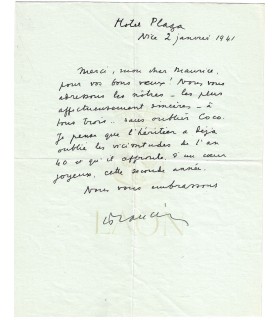 Hotel Plaza
Nice 2 janvier 1941
Merci, mon cher Maurice,
pour vos bons vœux ! Nous vous
adressons les nôtres - les plus
affectueusement sincères - à
tous trois.. sans oublier Coco.
Je pense que l'héritier a déjà
oublié les vicissitudes de l'an
40 et qu'il affronte, d'un cœur
joyeux, cette seconde année.
Nous vous embrassons